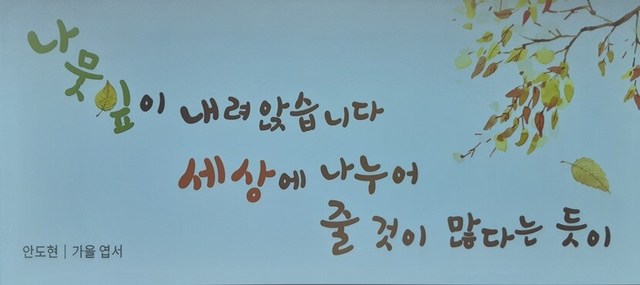 나뭇잎이 내려앉습니다
세상에 나누어
줄 것이 많다는 듯이
안도현 | 가을 엽서